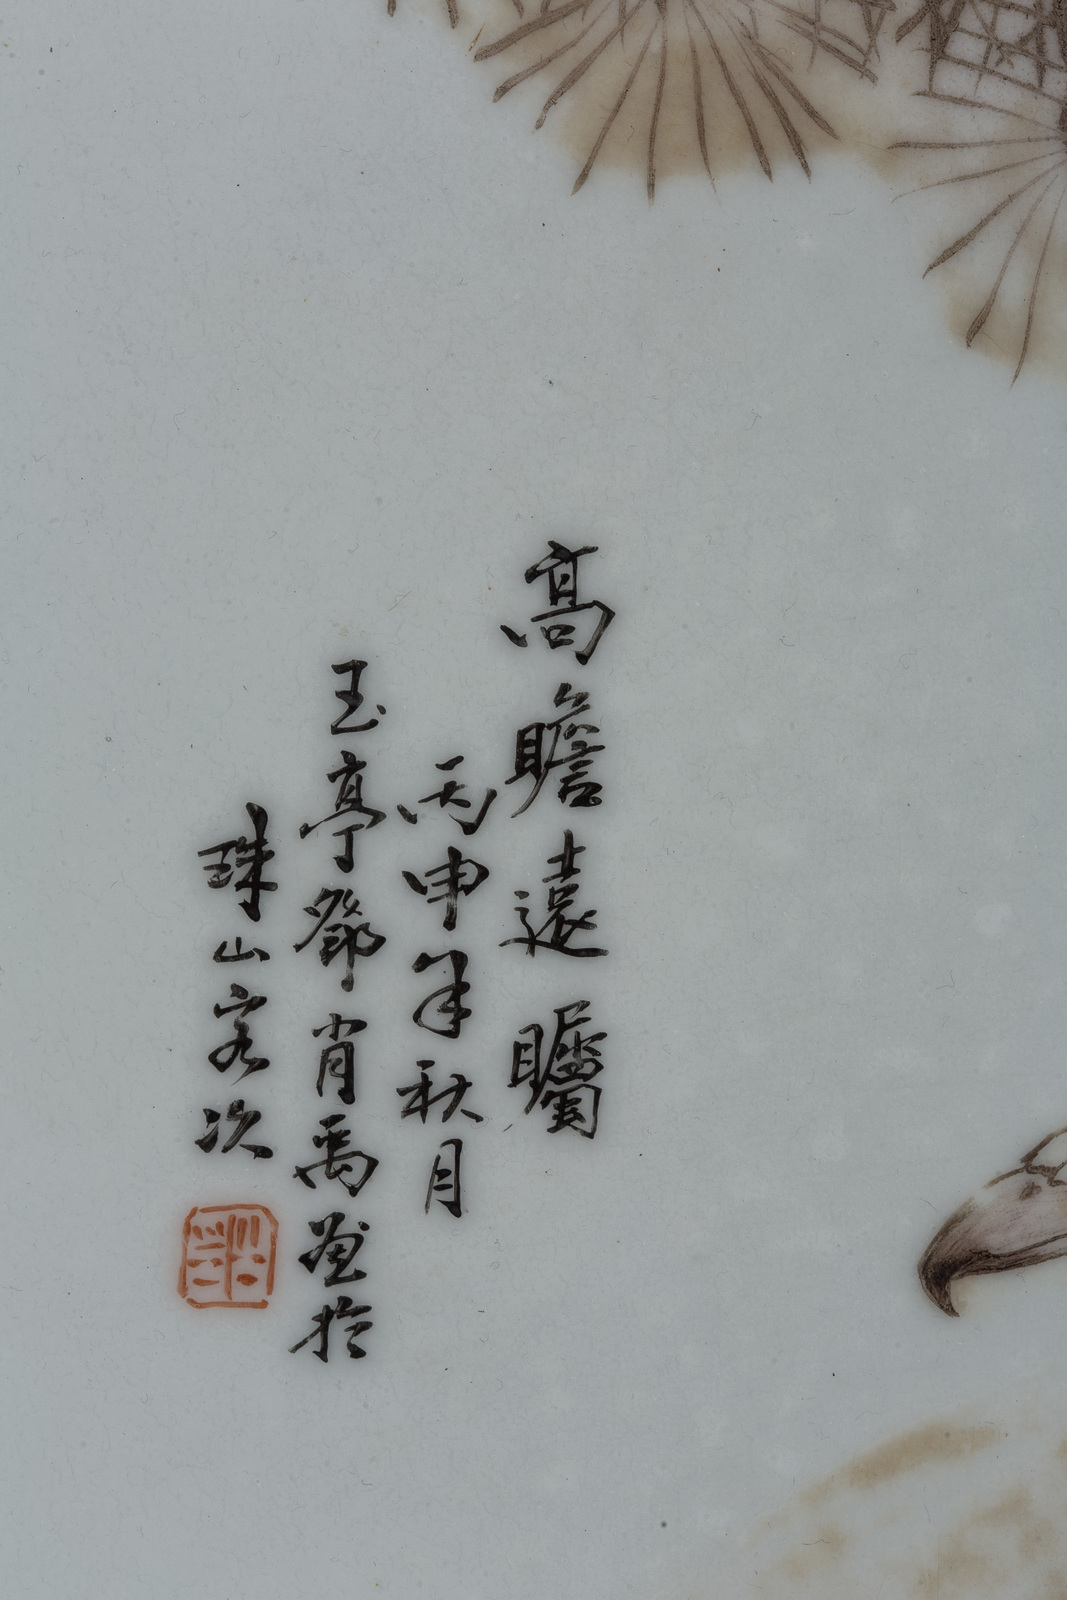 高瞻遠矚
丙申年秋月
玉亭鄧肖禹画於
珠山客次